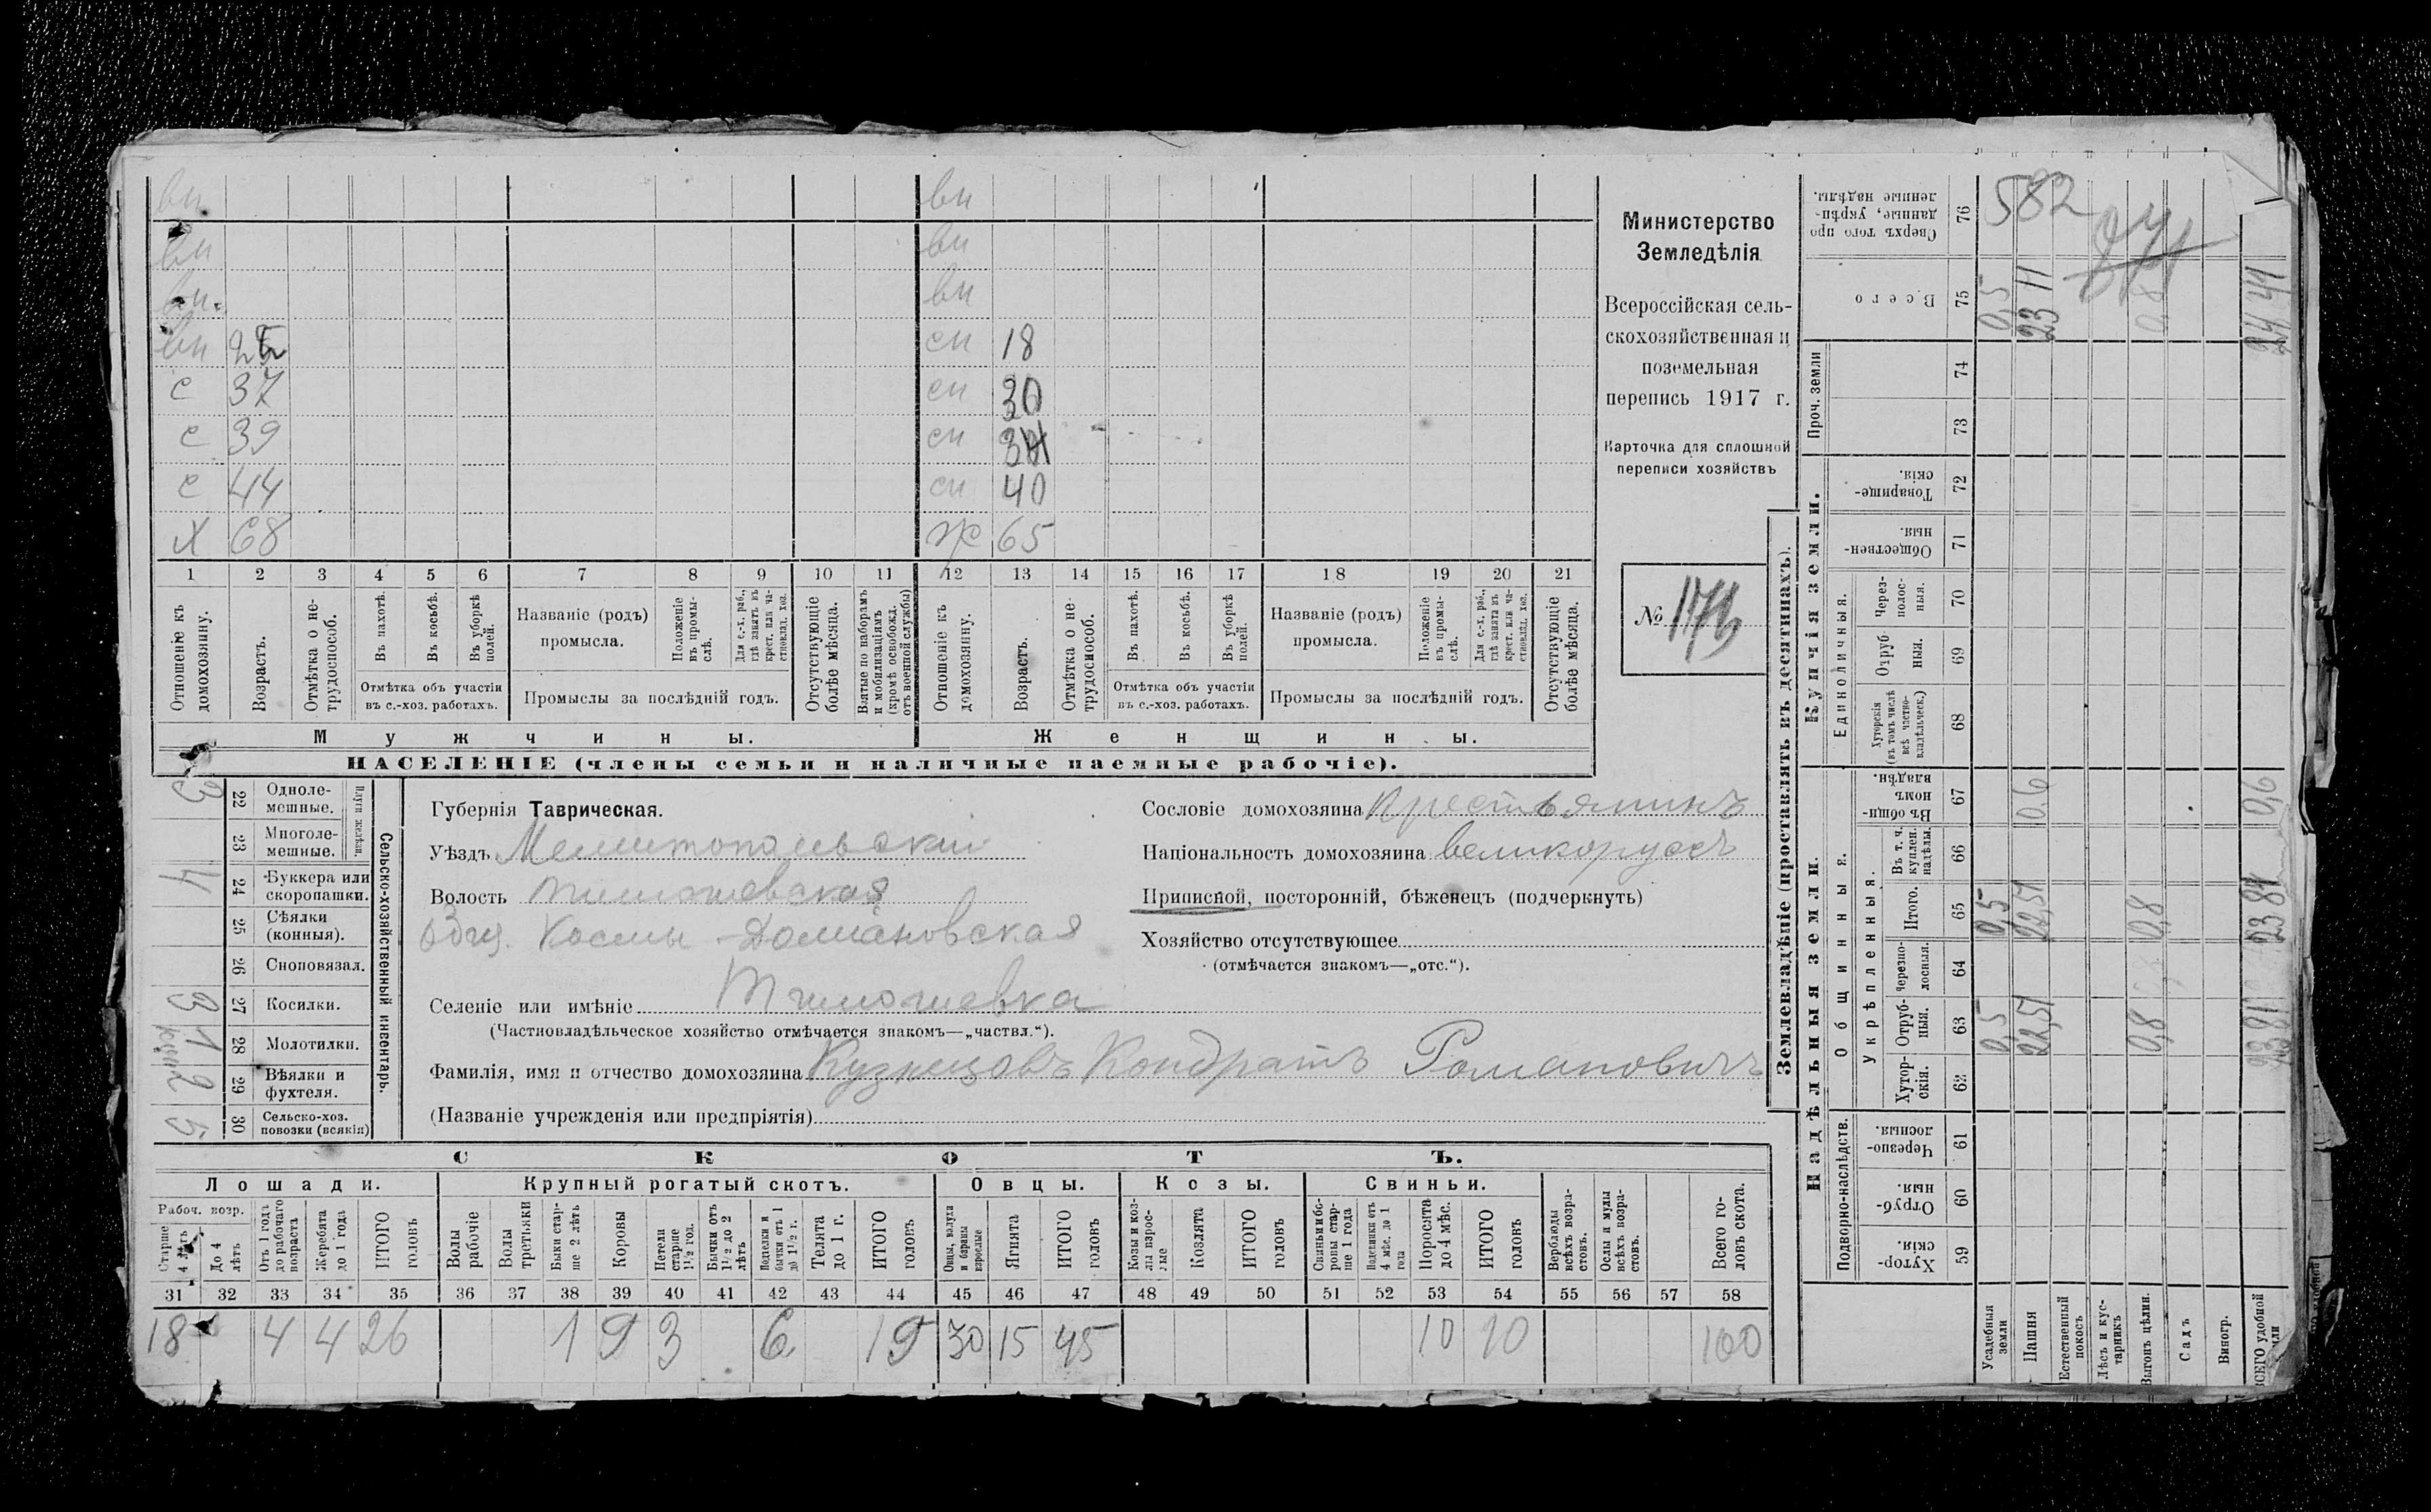 вн вн
вн вн
вн. вн
вн сн 18
с 37 сн 30
с 39 сн
с 44 сн 40
Х 68 ж 65
1 2 3 4 5 6 7 8 9 10 11 12 13 14 15 16 17 18 19 20 21
Отношеніе къ домохозяину.
Возрастъ.
Отмѣтка о не-трудоспособ.
Въ пахотѣ.
Въ косьбѣ.
Въ уборкѣ полей.
Отмѣтка объ участіи
въ с.-хоз. работахъ.
Названіе (родъ)
промысла.
Положеніе въ промы-слѣ.
Для с.-х. раб., гдѣ занятъ въ крест. или ча-стновлад. хоз.
Промыслы за послѣдній годъ.
Отсутствующіе болѣе мѣсяца.
Взятые по наборамъ и мобилизаціямъ (кромѣ освобожд. отъ военной службы)
Отношеніе къ домохозяину.
Возрастъ.
Отмѣтка о не-трудоспособ.
Въ пахотѣ.
Въ косьбѣ.
Въ уборкѣ полей.
Отмѣтка объ участіи
въ с.-хоз. работахъ.
Названіе (родъ)
промысла.
Положеніе въ промы-слѣ.
Для с.-х. раб., гдѣ занята въ крест. или ча-стновлад. хоз.
Промыслы за послѣдній годъ.
Отсутствующіе болѣе мѣсяца.
Мужчины. Женщины.
НАСЕЛЕНІЕ (члены семьи и наличные наемные рабочіе).
Министерство
Земледѣлія
Всероссійская сель-
скохозяйственная и
поземельная
перепись 1917 г.
Карточка для сплошной
переписи хозяйствъ
№
Сельско-хозяйственный инвентарь.
Плуги желѣзн.
3 22 Одноле-мешные.
23 Многоле-мешные.
4 24 Буккера или скоропашки.
25 Сѣялки (конныя).
26 Сноповязал.
3 27 Косилки.
1 28 Молотилки.
2 29 Вѣялки и фухтеля.
5 30 Сельско-хоз. повозки (всякія)
Губернія Таврическая.
Уѣздъ Мелитопольскій
Волость Тимошевская
Общ. Космы-Даміановская
Селеніе или имѣніе Тимошевка
(Частновладѣльческое хозяйство отмѣчается знакомъ—„частвл.“).
Фамилія, имя и отчество домохозяина Кузнецовъ Кондратъ Романовичъ
(Названіе учрежденія или предпріятія)
Сословіе домохозяина Крестьянинъ
Національность домохозяина великоруссъ
Приписной, посторонній, бѣженецъ (подчеркнуть)
Хозяйство отсутствующее
(отмѣчается знакомъ—„отс.“).
СКОТЪ.
Лошади. Крупный рогатый скотъ. Овцы. Козы. Свиньи.
Рабоч. возр.
Старше 4 лѣтъ
До 4 лѣтъ
Отъ 1 года до рабочаго возраста
Жеребята до 1 года
ИТОГО головъ
Волы рабочіе
Волы третьяки
Быки стар-ше 2 лѣтъ
Коровы
Нетели старше 1½ год.
Бычки отъ 1½ до 2 лѣтъ
Нетелки и бычки отъ 1 до 1½ г.
Телята до 1 г.
ИТОГО головъ
Овцы, валухи и бараны взрослые
Ягнята
ИТОГО головъ
Козы и коз-лы взрос-лые
Козлята
ИТОГО головъ
Свиньи бо-ровы стар-ше 1 года
Подсвинки отъ 4 мѣс. до 1 года
Поросята до 4 мѣс.
ИТОГО головъ
Верблюды всѣхъ возра-стовъ.
Ослы и мулы всѣхъ возра-стовъ.
Всего го-ловъ скота.
31 32 33 34 35 36 37 38 39 40 41 42 43 44 45 46 47 48 49 50 51 52 53 54 55 56 57 58
18 4 4 26 1 9 3 6 19 30 15 45 10 10 100
Землевладѣніе (проставлять въ десятинахъ).
Надѣльныя земли. Купчія земли. Проч. земли
Подворно-наслѣдств.
Хутор-скія. 59
Отруб-ныя. 60
Черезпо-лосныя. 61
Общинныя.
Укрѣпленныя.
Хутор-скія. 62
Отруб-ныя. 63
Черезпо-лосныя. 64
Итого. 65
Въ т. ч. куплен. надѣлы. 66
Въ общи-номъ владѣн. 67
Единоличныя.
Хуторскія (въ томъ числѣ всѣ частно-владѣльческ.) 68
Отруб-ныя. 69
Через-полос-ныя. 70
Обществен-ныя 71
Товарище-скія. 72
73
74
Всего 75
Сверхъ того про данные, укрѣп-ленные надѣлы. 76
582
Усадебныя земли 0,5 0,5 0,5
Пашня 22,51 22,51 0,6 23 11
Естественный покосъ
Лѣсъ и кус-тарникъ
Выгонъ цѣлин. 0,8 0,8 0,8
Садъ
Виногр.
ВСЕГО удобной земли 23 81 23 81 0,6 24 41